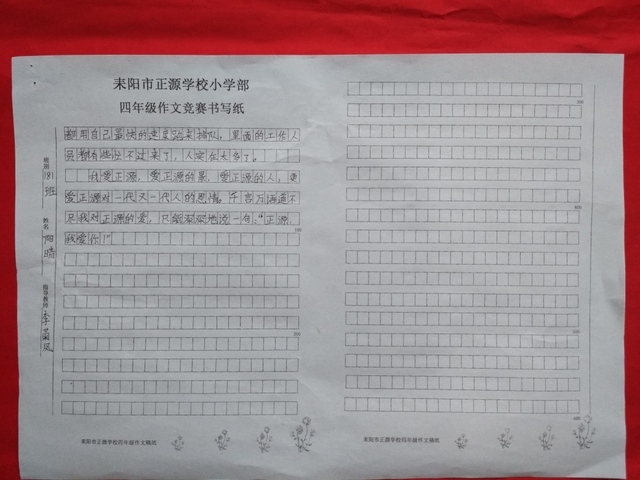 耒阳市正源学校小学部
四年级作文竞赛书写纸
都用自己最快的速度跑来排队，里面的工作人
员都有些忙不过来了，人实在太多了。
我爱正源，爱正源的景，爱正源的人，更
爱正源对一代又一代人的恩情。千言万语道不
尽我对正源的爱，只能深深地说一句：“正源，
我爱你！”
班别 181班
姓名 阳晴
指导教师 李
100
200
300
400
600
耒阳市正源学校四年级作文稿纸
耒阳市正源学校四年级作文稿纸